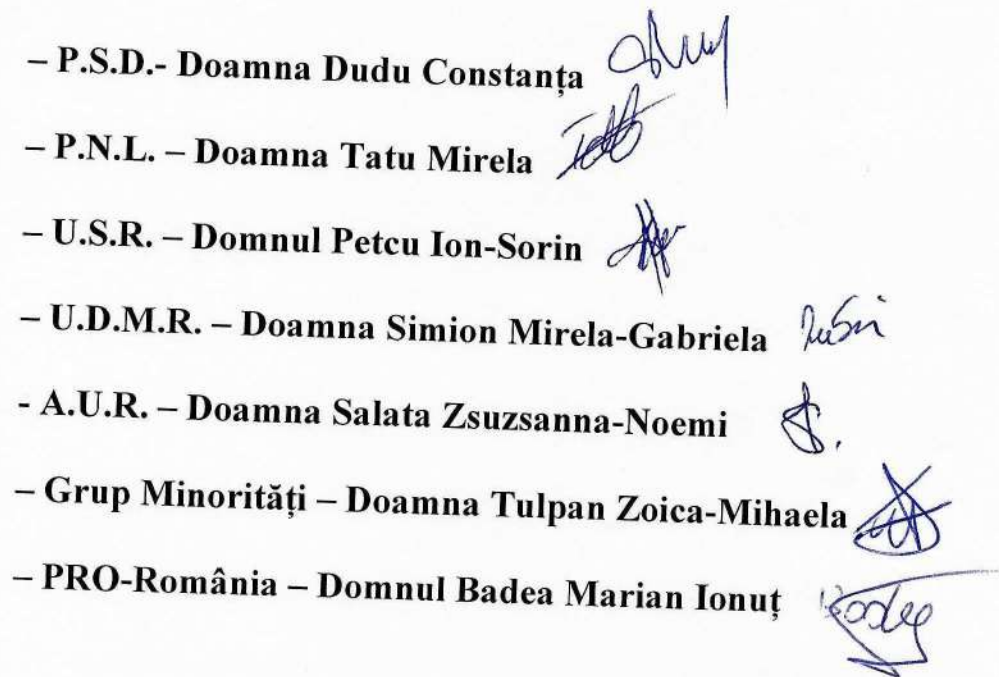 – P.S.D.- Doamna Dudu Constanța
– P.N.L. – Doamna Tatu Mirela
– U.S.R. – Domnul Petcu Ion-Sorin
– U.D.M.R. – Doamna Simion Mirela-Gabriela
- A.U.R. – Doamna Salata Zsuzsanna-Noemi
– Grup Minorități – Doamna Tulpan Zoica-Mihaela
– PRO-România – Domnul Badea Marian Ionuț